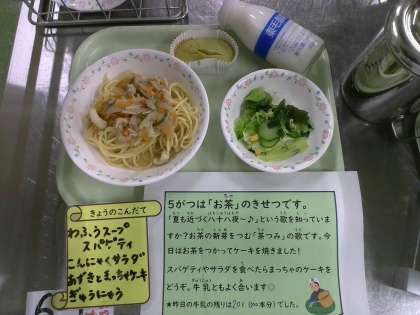 きょうのこんだて
わふうスープ
スパゲティ
こんにゃくサラダ
あずきとまっちゃケーキ
ぎゅうにゅう
5がつは「お茶」のきせつです。
「夏も近づく八十八夜～♪」という歌を知っていま
すか?お茶の新芽をつむ「茶つみ」の歌です。今
日はお茶をつかってケーキを焼きました!
スパゲティやサラダを食べたらまっちゃのケーキを
どうぞ。牛乳ともよく合います◎
★昨日の牛乳の残りは20ℓ
でした。